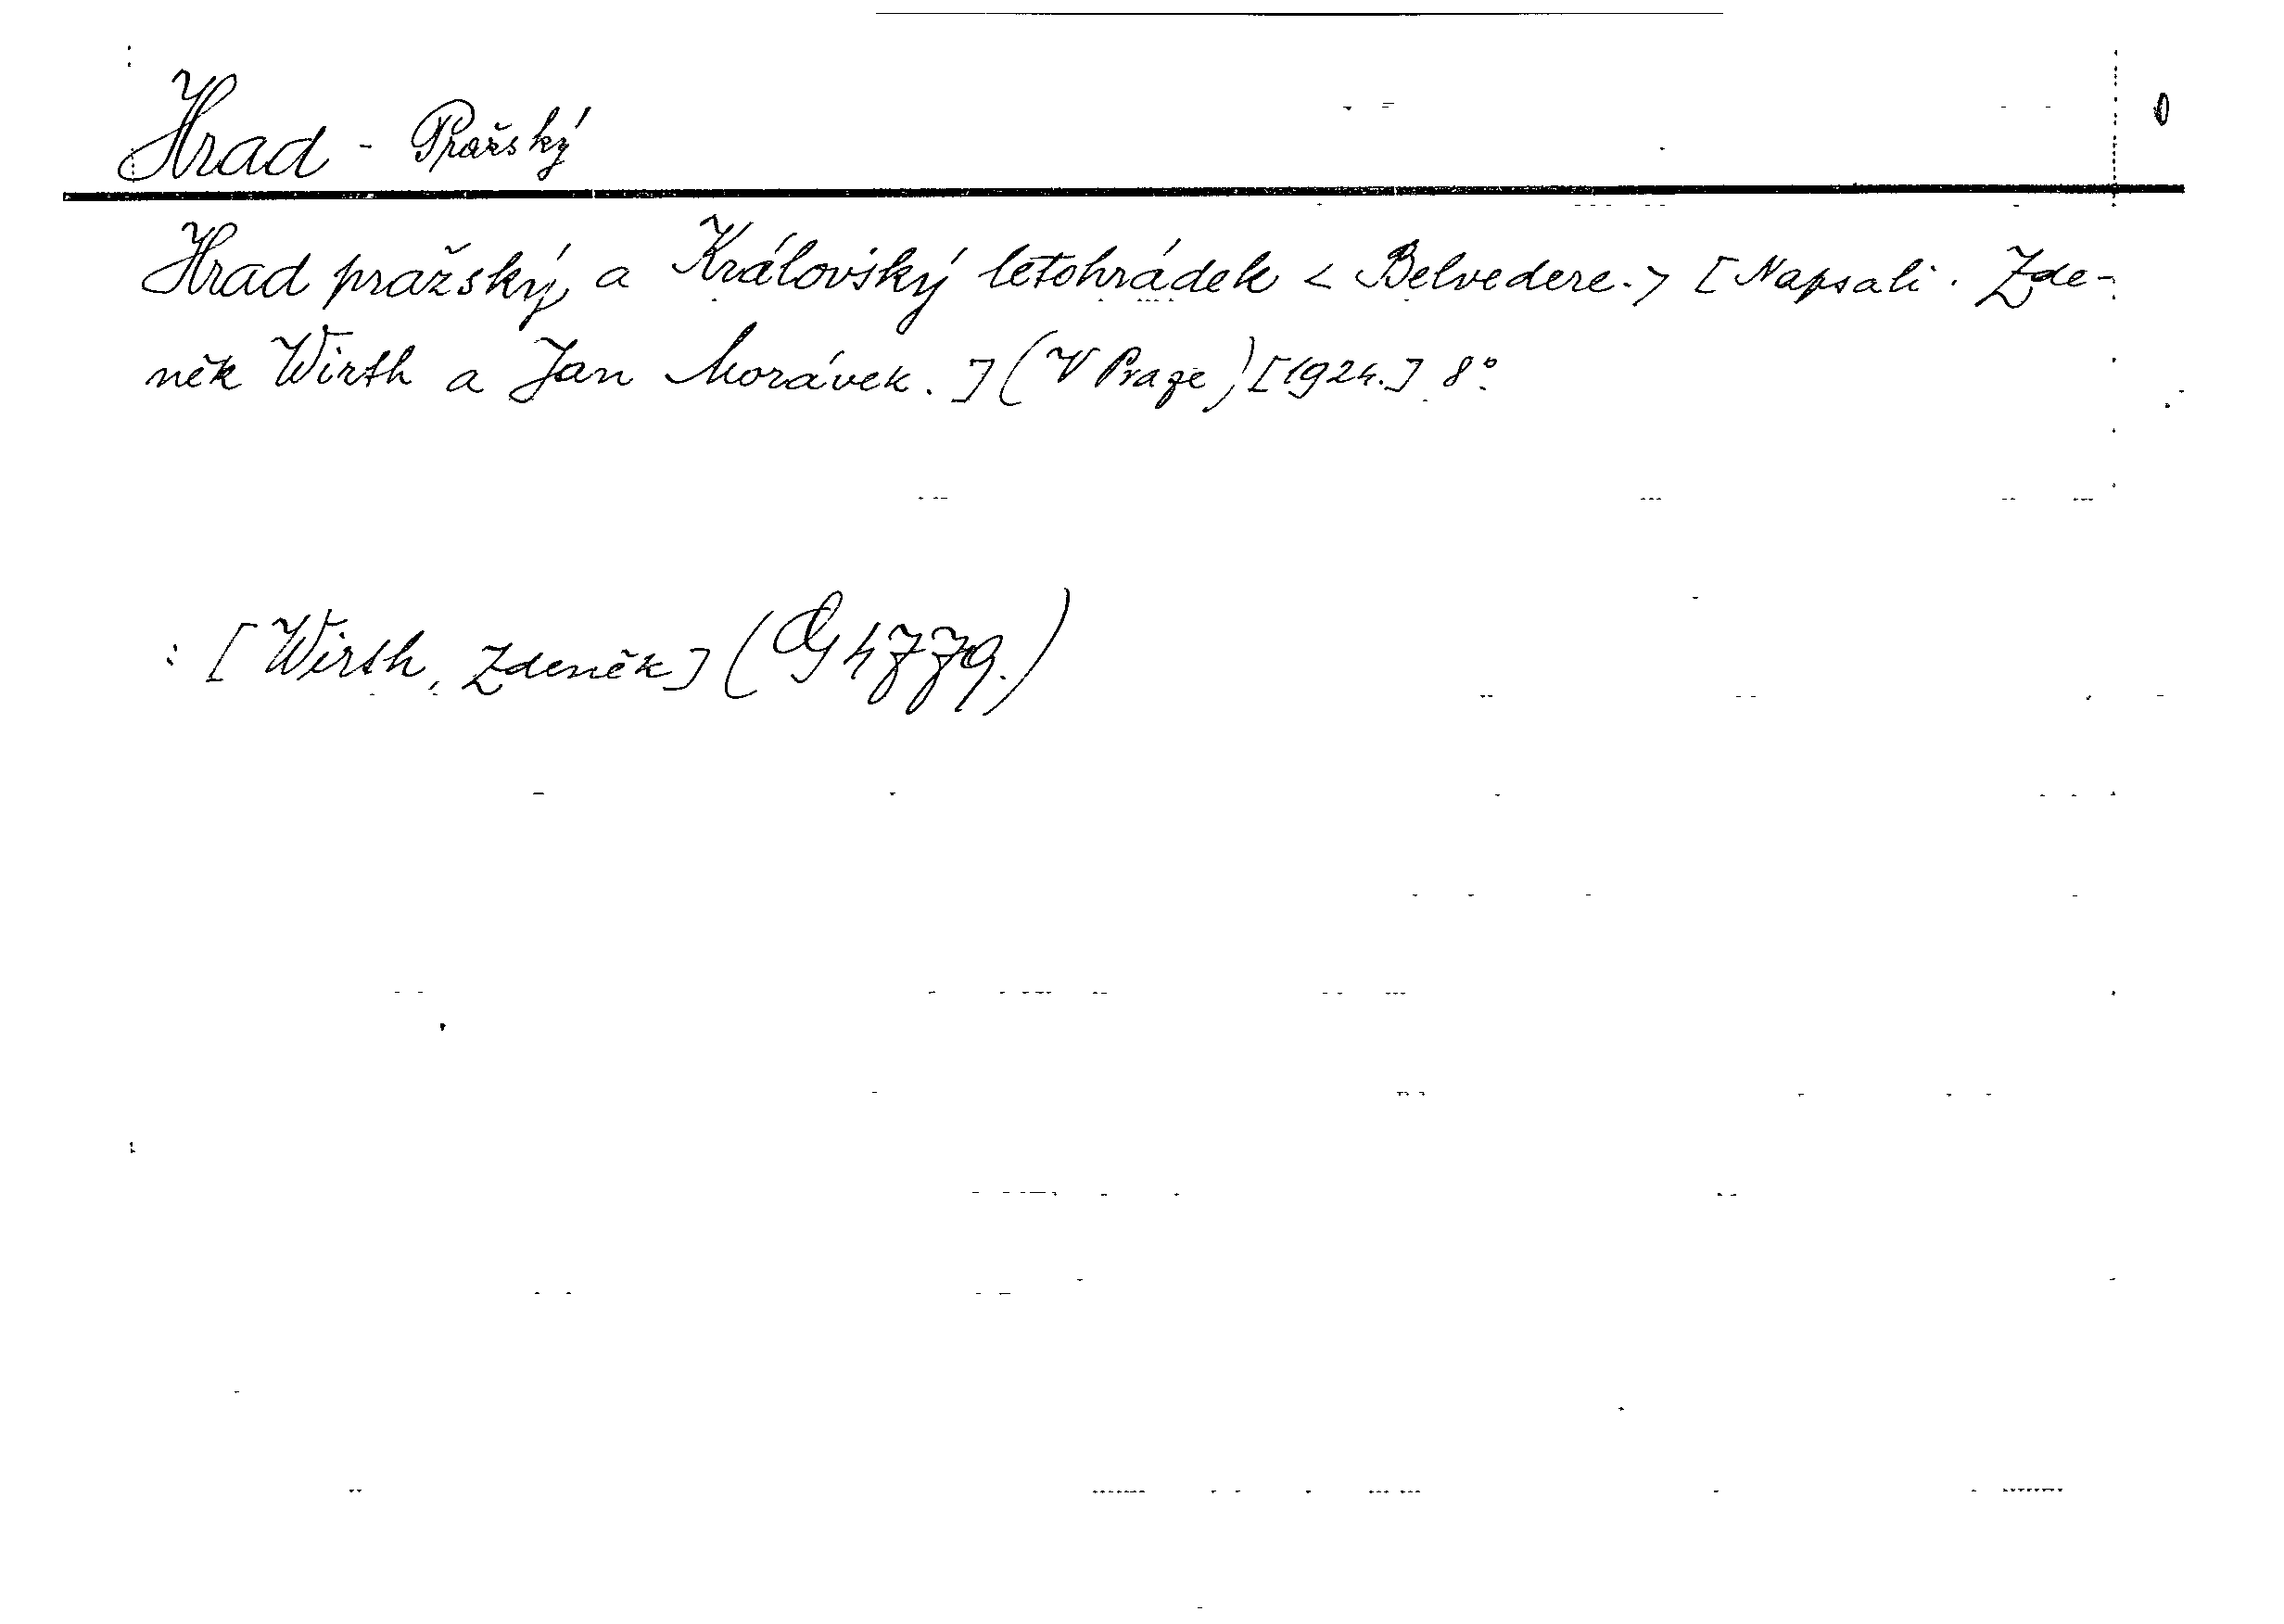 Hrad - Pražský
Hrad pražský a Královský letohrádek < Belvedere.> [Napsali. Zde-
něk Wirth a Jan Morávek.] (V Praze) [1924.] 8°.
: [Wirth, Zdeněk] (G 4779.)